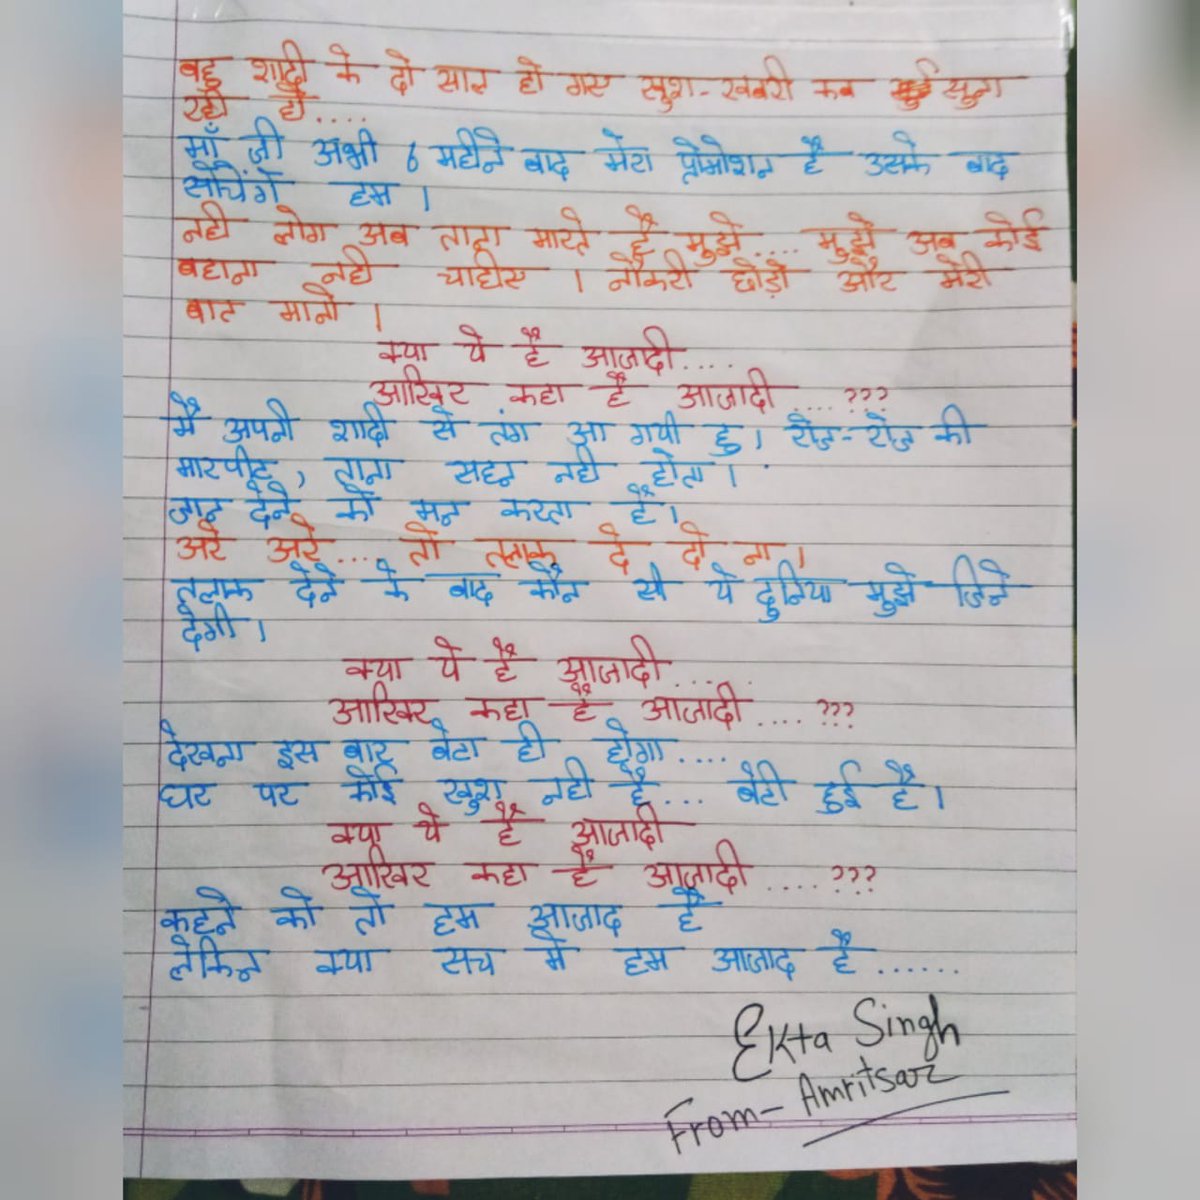 बहु शादी के दो साल हो गए खुश-खबरी कब सुना
रही हो....
माँ जी अभी 6 महीने बाद मेरा प्रोमोशन है उसके बाद
सोचेंगे हम।
नही लोग अब ताना मारते है मुझे.... मुझे अब कोई
बहाना नही चाहीए । नौकरी छोड़ो और मेरी
बात मानो।
क्या ये है आजादी....
आखिर कहा है आजादी ....???
मै अपनी शादी से तंग आ गयी हु। रोज-रोज की
मारपीट, ताना सहन नही होता।
जान देने को मन करता है।
अरे अरे... तो तलाक दे दो ना।
तलाक देने के बाद कौन सी ये दुनिया मुझे जिने
देगी।
क्या ये है आजादी....
आखिर कहा है आजादी.... ???
देखना इस बार बेटा ही होगा....
घर पर कोई खुश नही है... बेटी हुई है।
क्या ये है आजादी
आखिर कहा है आजादी ....???
कहने को तो हम आजाद है
लेकिन क्या सच मे हम आजाद है......
Ekta Singh
From- Amritsar